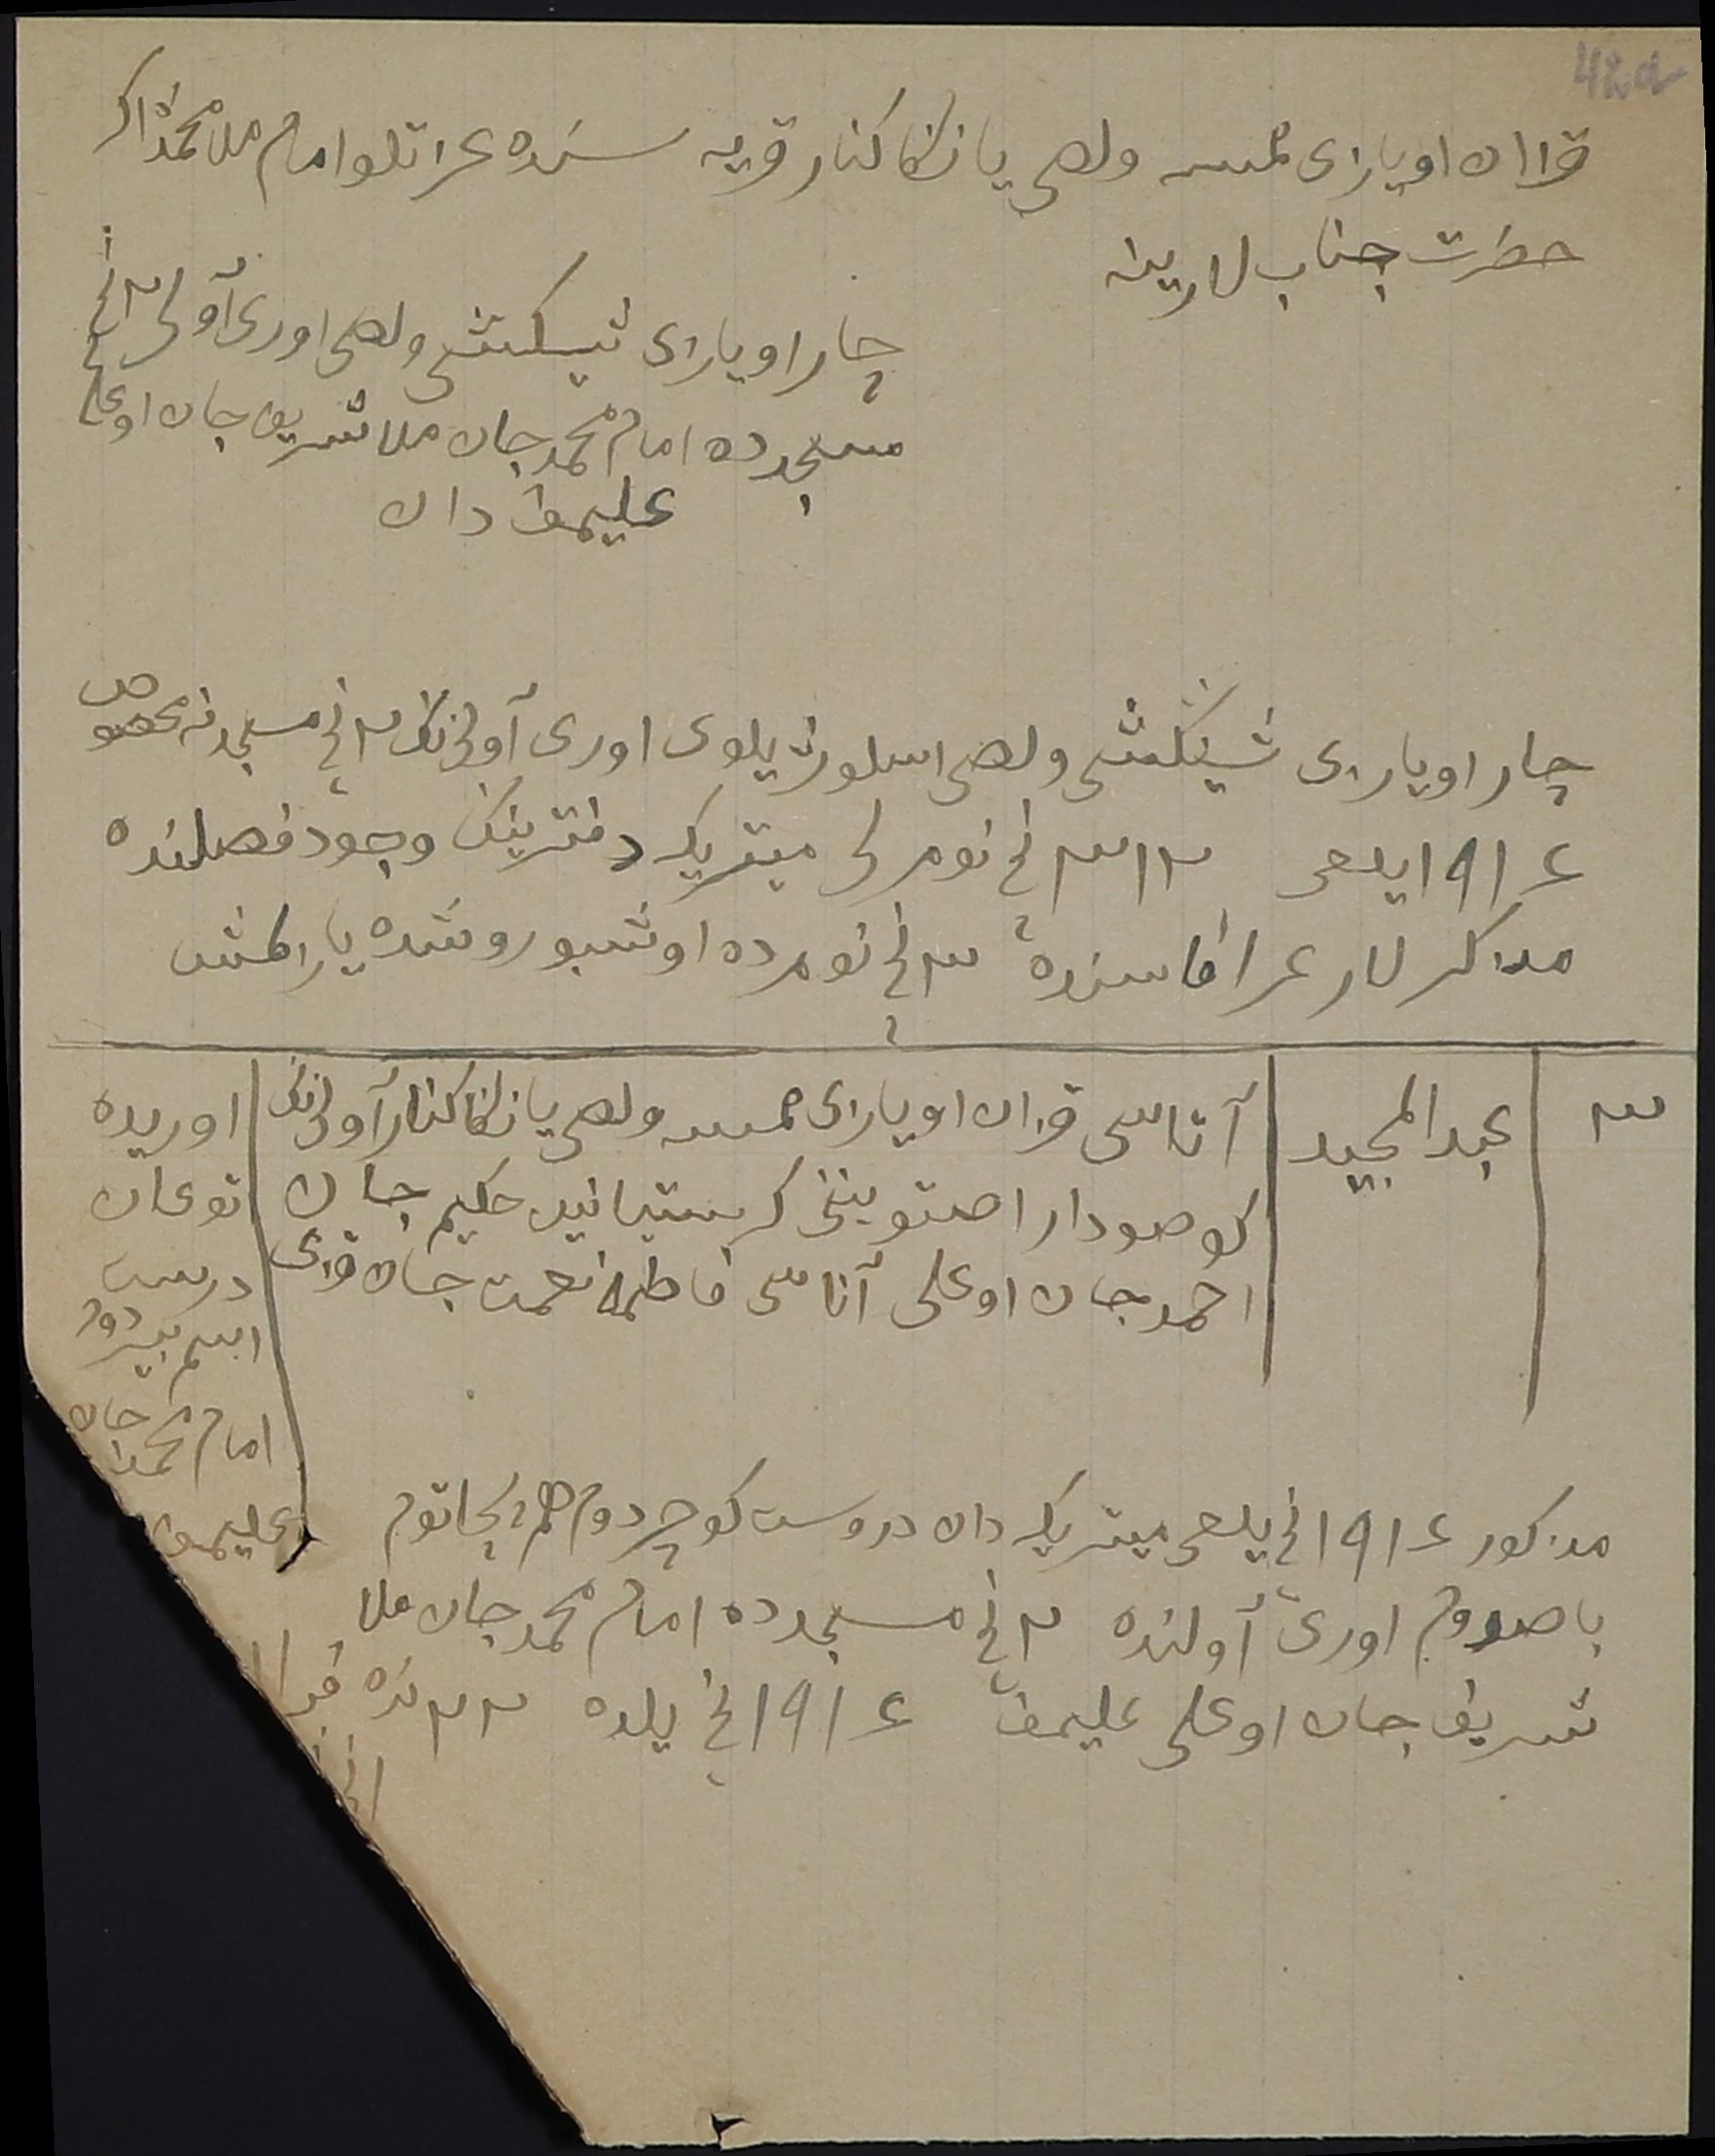 42a
قزان اویازی ممسه ولصی یانکا کنار قریه سنده عزاتلو امام ملا محمدذاکر
حضرت جناب لارینه
چار اویازی تیبکیش ولصی اوری آولی ۲نچی
مسجدده امام محمدجان ملا شریف جان اوغلی
علیموف دان
چار اویازی تیبکیش ولصی اوری آولی نک ۲نچی مسجدنه مخصوص
۱۹۱۶ یلغی نچی نومرلی میتریکه دفترینک وجود فصلنده
مذکرلار غرافاسنده ۳نچی نومرده اوشبو روشده یازلمش
۳
عبدالمجید
آتاسی قزان اویازی ممسه ولصی یانکا کنار آولی نک
احمدجان اوغلی آناسی فاطمه نعمت جان قزی
اوریده
توغان
درست
امام محمدجان
علیموف
مذکور ۱۹۱۶نچی یلغی میتریکه دان دروست کوچردوم هم پچاتوم
باصدوم اوری آولنده ۲نچی مسجدده امام محمدجان ملا
شریف جان اوغلی علیموف ۱۹۱۶نچی یلده ۲۲نده